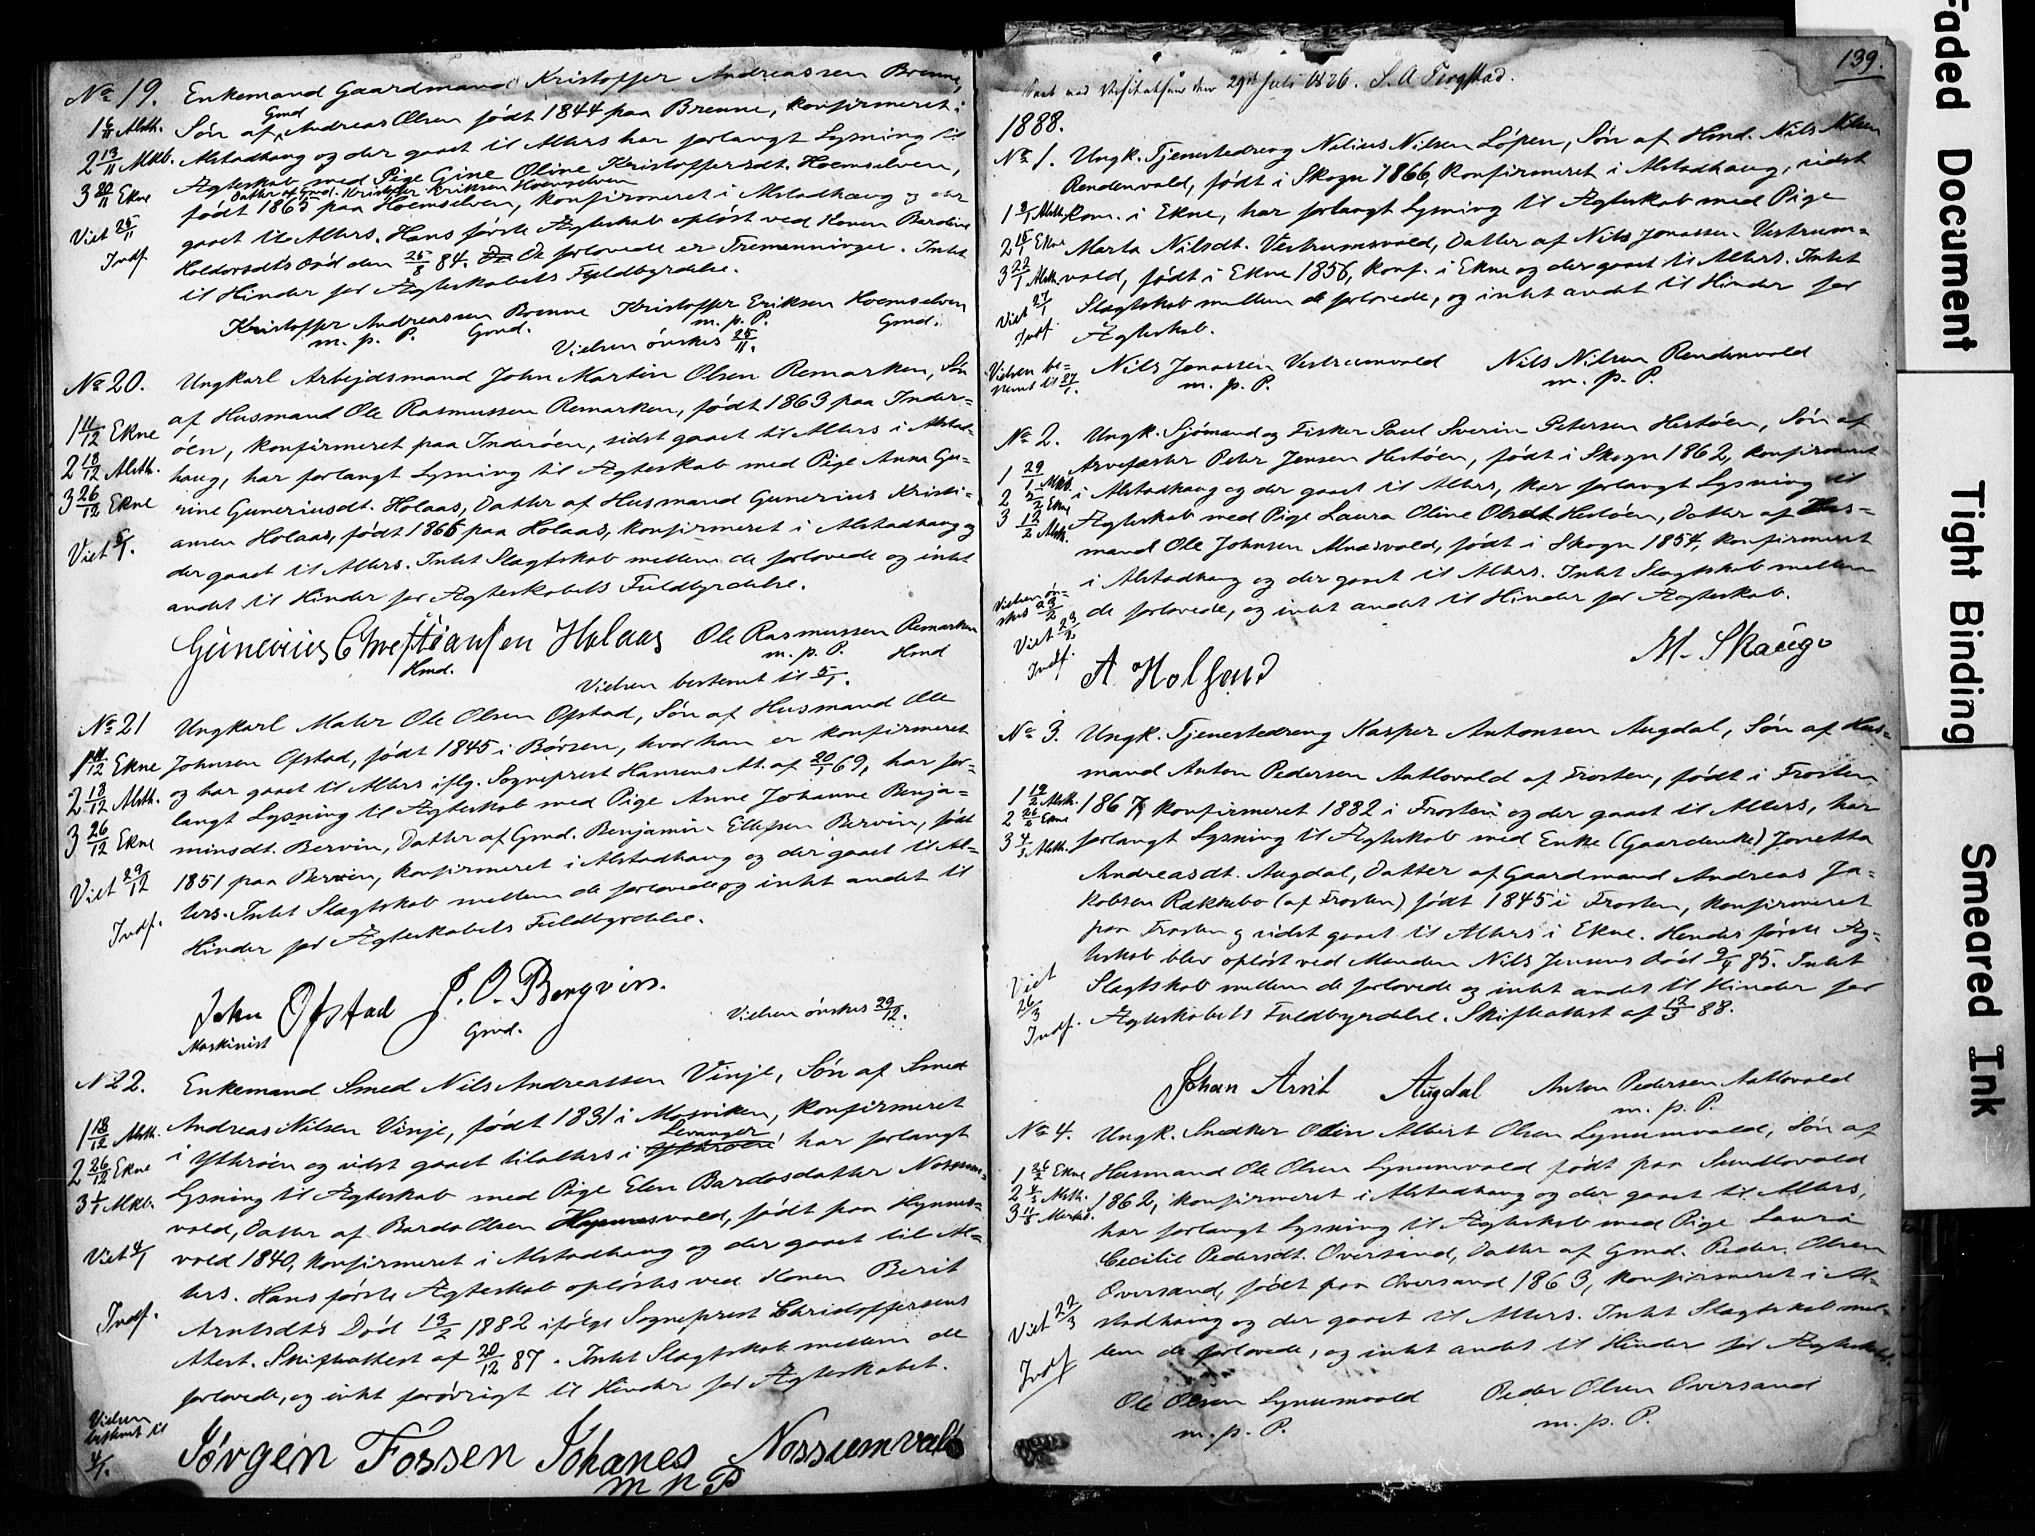 No 19. Enkemand Gaardmand Kristoffer Andreassen Brenne,
Gmd
1 6/11 Alsth. Søn af Andreas Olsen født 1844 paa Brenne, konfirmeret i
2 13/11 Mkb. Alstadhaug og der gaaet til Alters har forlangt Lysning til
Ægteskab med Pige Gine Oline Kristoffersdt. Hoemselven,
Datter af Gmd. Kristoffer Eriksen Hoemselven
3 20/11 Ekne født 1865 paa Hoemselven, konfirmeret i Alstadhaug og der
Viet 25/11 gaaet til Alters. Hans første Ægteskab opløst ved Konen Bardine
Indf. Holdorsdt's Død den 25/8 84. De forlovede er Tremenninger. Intet
til Hinder for Ægteskabets Fuldbyrdelse.
Kristoffer Andreassen Brenne Kristoffer Eriksen Hoemselven
m. p. P. Gmd. m. p. P. Gmd.
Vielsen ønskes 25/11.
No 20. Ungkarl Arbejdsmand John Martin Olsen Remarken, Søn
af Husmand Ole Rasmussen Remarken, født 1863 paa Inder=
1 11/12 Ekne øen, konfirmeret paa Inderøen, sidst gaaet til Alters i Alstad=
2 18/12 Alsth. haug, har forlangt Lysning til Ægteskab med Pige Anna Gu=
3 26/12 Ekne rine Guneriusdt. Holaas, Datter af Husmand Gunerius Kristi=
ansen Holaas, født 1866 paa Holaas, konfirmeret i Alstadhaug og
Viet 5/1. der gaaet til Alters. Intet Slægtskab mellem de forlovede og intet
andet til Hinder for Ægteskabets Fuldbyrdelse.
Gunerius Christiansen Holaas Ole Rasmussen Remarken
Hmd. m. p. P. Hmd
Vielsen bestemt til 5/1.
No 21 Ungkarl Maler Ole Olsen Opstad, Søn af Husmand Ole
Johnsen Opstad, født 1845 i Børsen, hvor han er konfirmeret
1 11/12 Ekne og har gaaet til Alters iflg. Sogneprest Hansens At. af 20/1 69, har for=
2 18/12 Alsth. langt Lysning til Ægteskab med Pige Anne Johanne Benja=
3 26/12 Ekne minsdt. Bervin, Datter af Gmd. Benjamin Ellefsen Bervin, født
Viet 29/12 1851 paa Bervin, konfirmeret i Alstadhaug og der gaaet til Al=
Indf. ters. Intet Slægtskab mellem de forlovede og intet andet til
Hinder for Ægteskabets Fuldbyrdelse.
John Opstad J. O. Bergvin.
Maskinist Gmd. Vielsen ønskes 29/12.
N 22. Enkemand Smed Nils Andreassen Vinje, Søn af Smed
Andreas Nilsen Vinje, født 1831 i Mosviken, konfirmeret
Levanger
1 18/12 Alsth. i Ytterøen og sidst gaaet til alters i Ytterøen har forlangt
2 26/12 Ekne Lysning til Ægteskab med Pige Elen Bardosdatter Nossum=
3 1/1 Mkb. vald, Datter af Bardo Olsen Hynnesvald, født paa Hynnes=
Viet 4/1 vald 1840, konfirmeret i Alstadhaug og der gaaet til Al=
ters. Hans første Ægteskab opløstes ved Konen Berit
Indf. Arntsdt's Død 13/2 1882 ifølge Sogneprest Christoffersens
Attest. Skifteattest af 20/12 87. Intet Slægtskab mellem de
forlovede, og intet forøvrigt til Hinder for Ægteskabet.
Vielsen bestemt til 4/1.
Jørgen Fossen Johanes Nossumvald
m p P
139.
den 29de Juli 1886. S. A.
1888.
No 1. Ungk. Tjenestedreng Nelius Nilsen Løpen, Søn af Hmd. Nils Nilsen
Rendenvald, født i Skogn 1866, konfirmeret i Alstadhaug, sidst
1 8/1 Alsth. kom. i Ekne, har forlangt Lysning til Ægteskab med Pige
2 15/1 Ekne Marta Nilsdt. Vestrumsvald, Datter af Nils Jonassen Vestrum=
3 22/1 Alsth. vald, født i Ekne 1856, konf. i Ekne og der gaaet til Alters. Intet
Viet 27/1 Slægtskab mellem de forlovede, og intet andet til Hinder for
Indf. Ægteskab.
Vielsen be=
stemt til 27/1.
Nils Jonassen Vestrumvald Nils Nilsen Rendenvald
m. p. P. m. p. P.
No 2. Ungk. Sjømand og Fisker Paul Sverin Petersen Hestøen, Søn af
1 29/1 Mkb. Arvefæster Peter Jensen Hestøen, født i Skogn 1862, konfirmeret
2 5/2 Ekne i Alstadhaug og der gaaet til Alters, har forlangt Lysning til
3 12/2 Alsth. Ægteskab med Pige Laura Oline Olsdt. Hestøen, Datter af Hus=
mand Ole Johnsen Alnæsvald, født i Skogn 1854, konfirmeret
i Alstadhaug og der gaaet til Alters. Intet Slægtskab mellem
Vielsen øn=
skes 23/2 de forlovede, og intet andet til Hinder for Ægteskab.
Viet 23/2
Indf. A Holsand M. Skaugo
No 3. Ungk. Tjenestedreng Kasper Antonsen Augdal, Søn af Hus=
mand Anton Pedersen Aatlovald af Frosten, født i Frosten
1 19/2 Alsth. 1867, konfirmeret 1882 i Frosten og der gaaet til Alters, har
2 26/2 Ekne
3 4/3 Alsth. forlangt Lysning til Ægteskab med Enke (Gaardenke) Jonetta
Andreasdt. Augdal, Datter af Gaardmand Andreas Ja=
kobsen Rækkebo (af Frosten) født 1845 i Frosten, konfirmeret
paa Frosten og sidst gaaet til Alters i Ekne. Hendes første Æg=
teskab blev opløst ved Manden Nils Jensens Død 9/4 85. Intet
Viet 26/3 Slægtskab mellem de forlovede og intet andet til Hinder for
Indf. Ægteskabets Fuldbyrdelse. Skifteattest af 13/3 88.
Johan Arnt Augdal Anton Pedersen Aatlovald
m. p. P.
No 4. Ungk. Snedker Odin Albert Olsen Lynumvald, Søn af
1 26/2 Ekne Husmand Ole Olsen Lynumvald født paa Sundlovald
2 4/3 Alsth. 1862, konfirmeret i Alstadhaug og der gaaet til Alters,
3 11/3 Markb. har forlangt Lysning til Ægteskab med Pige Laura
Cecilie Pedersdt. Oversand, Datter af Gmd. Peder Olsen
Oversand, født paa Oversand 1863, konfirmeret i Al=
Viet 22/3 stadhaug og der gaaet til Alters. Intet Slægtskab mel=
Indf lem de forlovede, og intet andet til Hinder for Ægteskabet.
Ole Olsen Lynumvald Peder Olsen Oversand
m. p. P. m. p. P.
Faded Document
Tight Binding
Smeared Ink